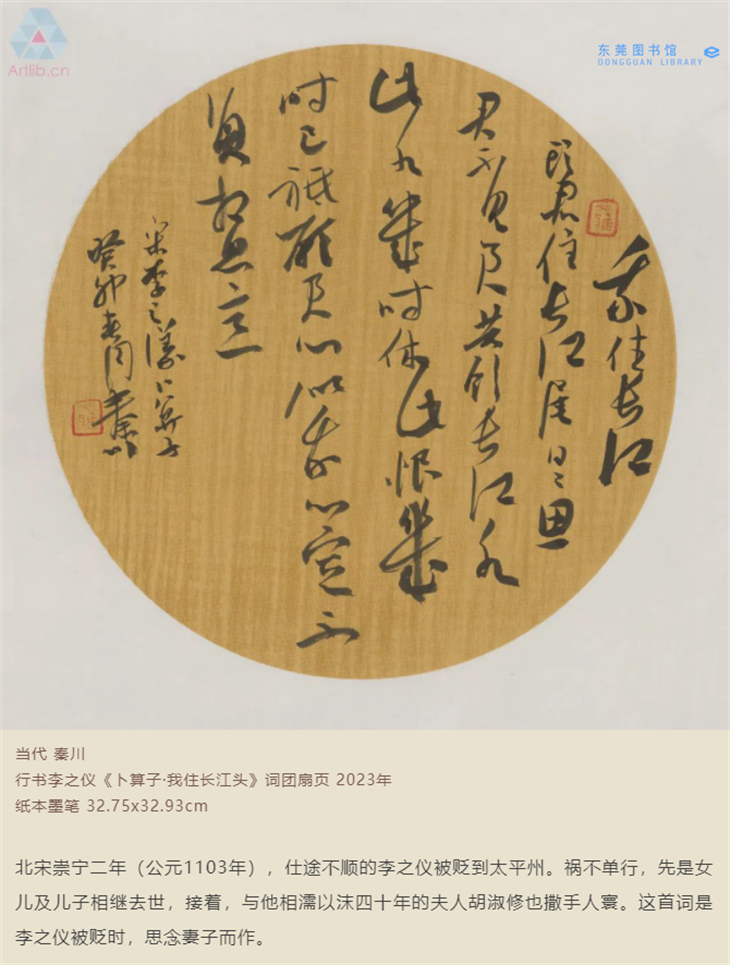 Artlib.cn
东莞图书馆
DONGGUAN LIBRARY
我住長江
頭君住長江尾日〻思
君不見君共飲長江水
此水幾時休此恨幾
時已祇願君心似我心定不
負相思意
宋李之儀卜算子
癸卯春月秦川
当代 秦川
行书李之仪《卜算子·我住长江头》词团扇页 2023年
纸本墨笔 32.75x32.93cm
北宋崇宁二年（公元1103年），仕途不顺的李之仪被贬到太平州。祸不单行，先是女
儿及儿子相继去世，接着，与他相濡以沫四十年的夫人胡淑修也撒手人寰。这首词是
李之仪被贬时，思念妻子而作。